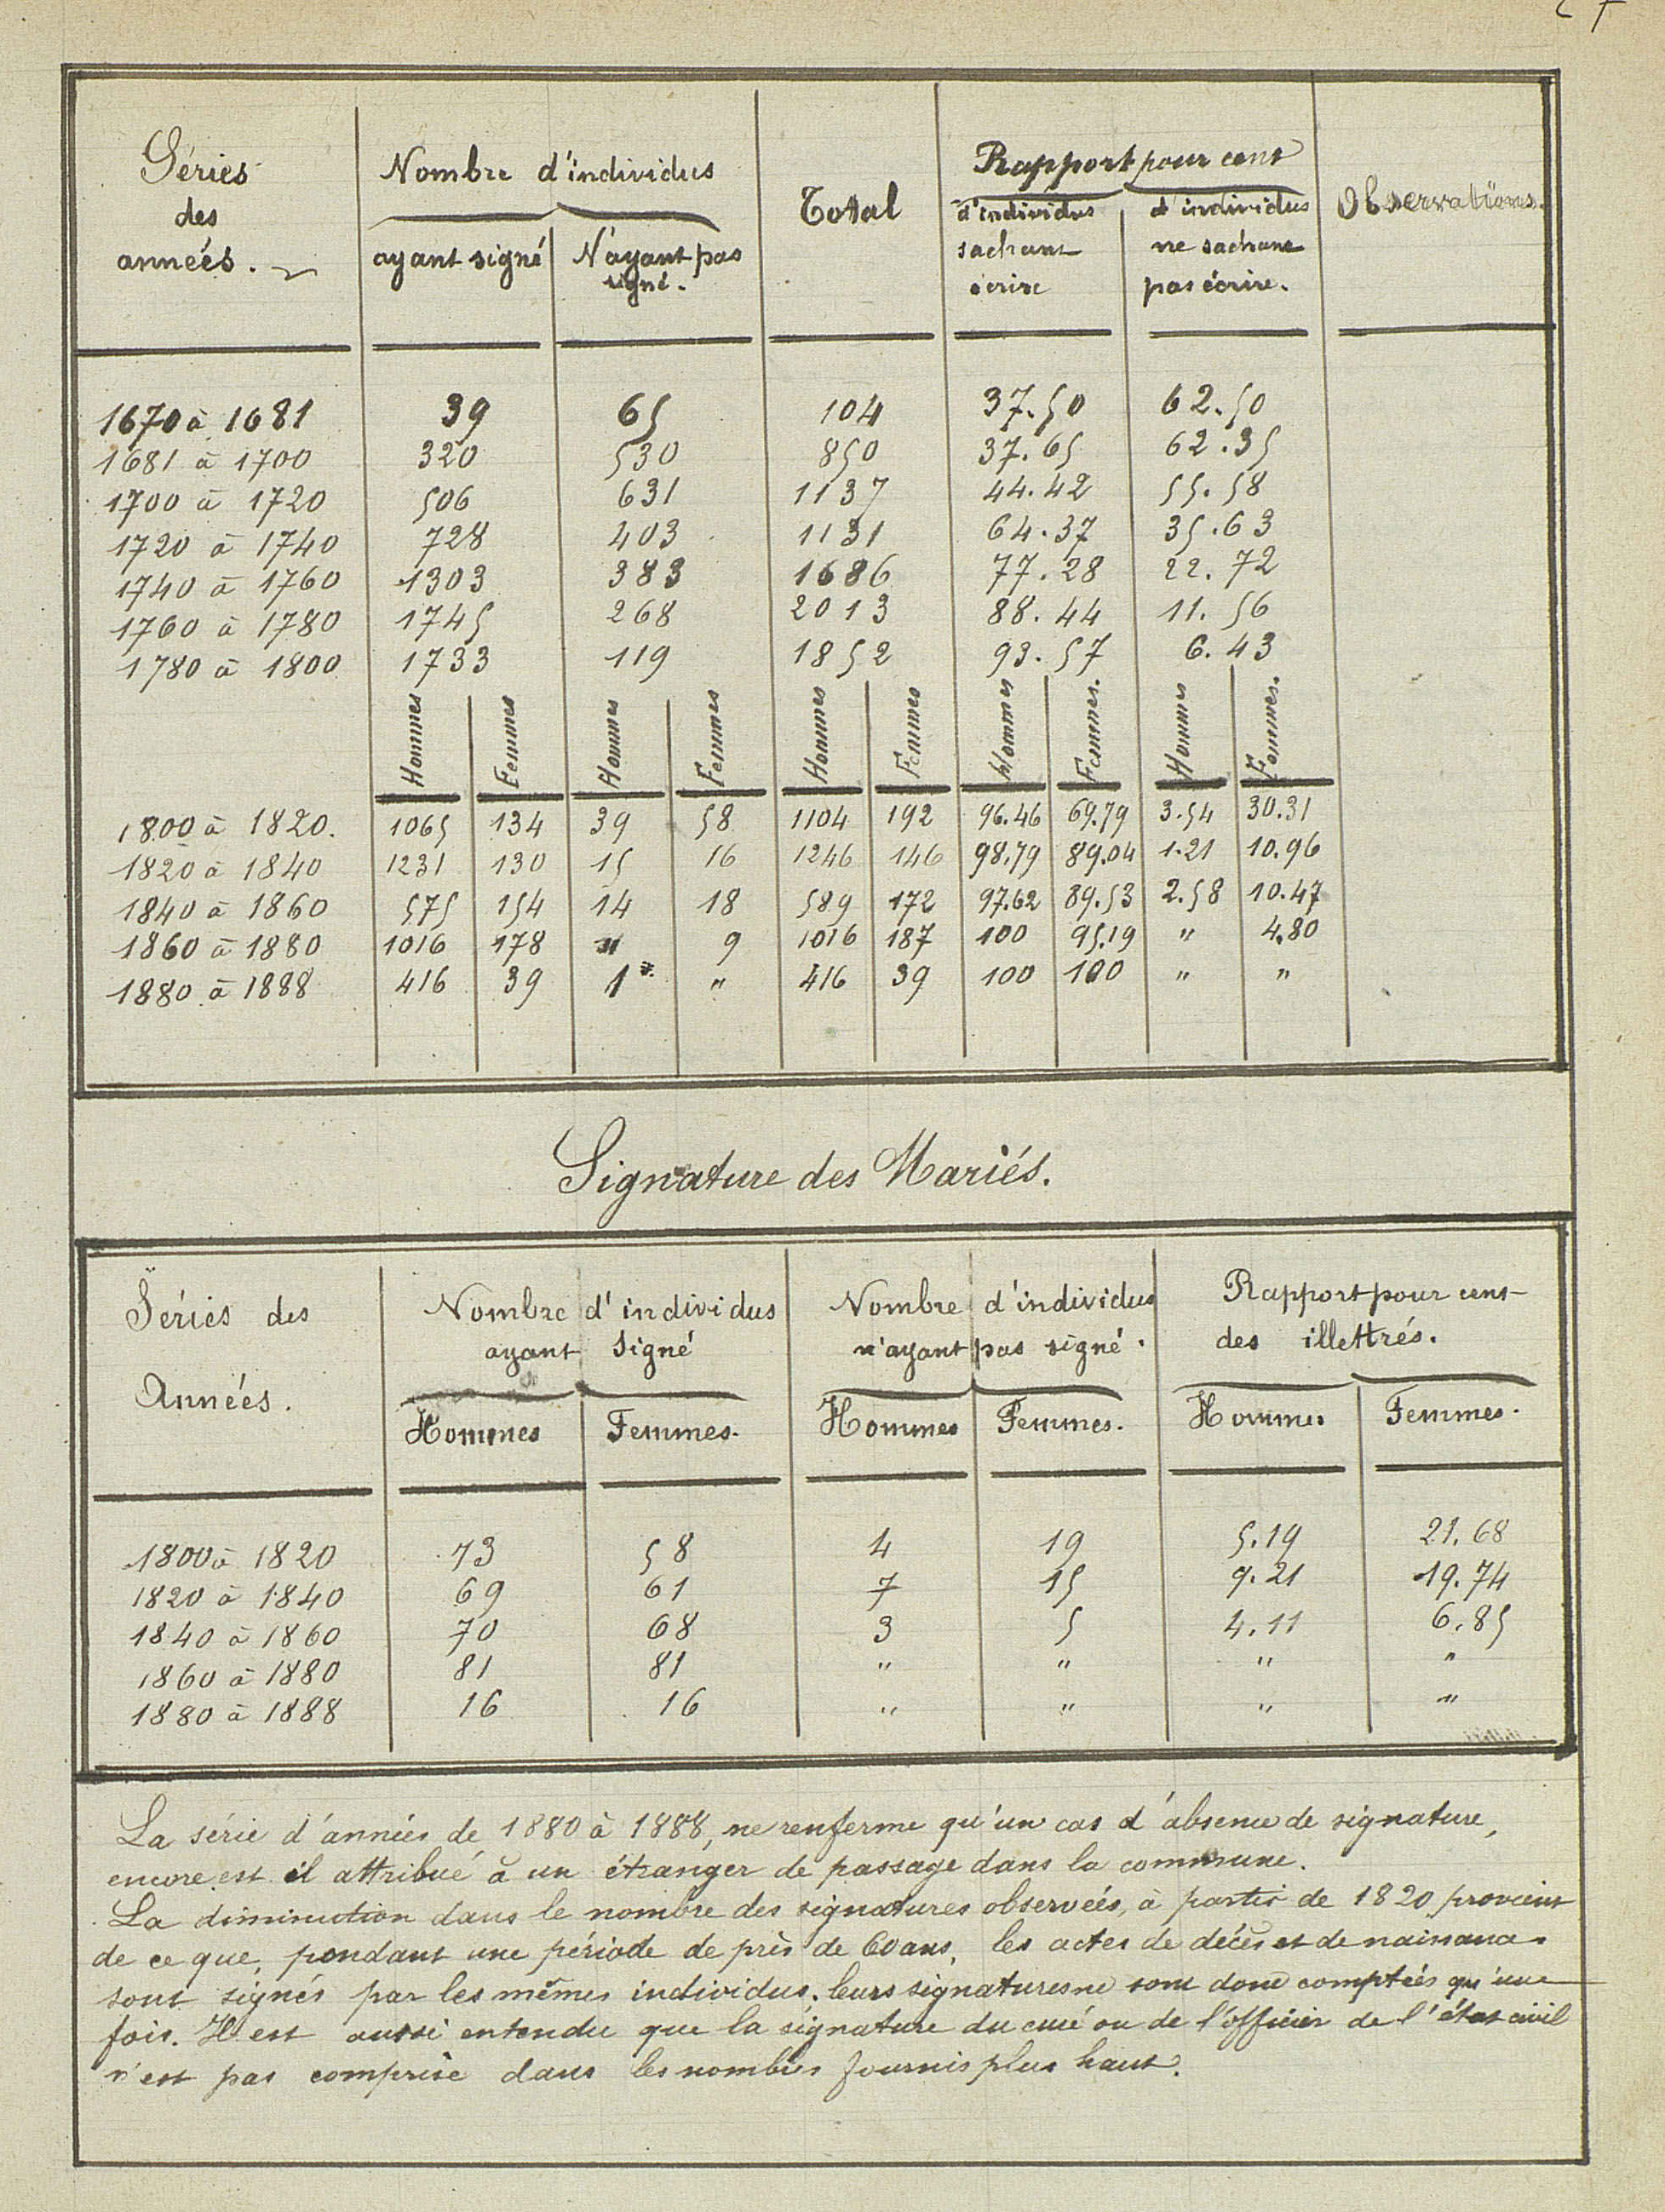 Séries des années.
Nombre d'individus
ayant signé
N'ayant pas signé.
Total
Rapport pour cent
d'individus sachant écrire
d'individus ne sachant pas écrire.
Observations.
1670 à 1681 39 65 104 37.50 62.50
1681 à 1700 320 530 850 37.65 62.35
1700 à 1720 506 631 1137 44.42 55.58
1720 à 1740 728 403 1131 64.37 35.63
1740 à 1760 1303 383 1686 77.28 22.72
1760 à 1780 1745 268 2013 88.44 11.56
1780 à 1800 1733 119 1852 93.57 6.43
Hommes Femmes Hommes Femmes Hommes Femmes Hommes Femmes. Hommes Femmes.
1800 à 1820. 1065 134 39 58 1104 192 96.46 69.79 3.54 30.31
1820 à 1840 1231 130 15 16 1246 146 98.79 89.04 1.21 10.96
1840 à 1860 575 154 14 18 589 172 97.62 89.53 2.58 10.47
1860 à 1880 1016 178 " 9 1016 187 100 95.19 " 4.80
1880 à 1888 416 39 1 " 416 39 100 100 " "
Signature des Mariés.
Séries des Années.
Nombre d'individus ayant signé
Nombre d'individus n'ayant pas signé.
Rapport pour cent des illettrés.
Hommes Femmes. Hommes Femmes. Hommes Femmes.
1800 à 1820 73 58 4 19 5.19 21.68
1820 à 1840 69 61 7 15 9.21 19.74
1840 à 1860 70 68 3 5 4.11 6.85
1860 à 1880 81 81 " " " "
1880 à 1888 16 16 " " " "
La série d'années de 1880 à 1888, ne renferme qu'un cas d'absence de signature,
encore est il attribué à un étranger de passage dans la commune.
La diminution dans le nombre des signatures observées, à partir de 1820 provient
de ce que, pendant une période de près de 60 ans, les actes de décès et de naissance
sont signés par les mêmes individus. leurs signatures ne sont donc comptées qu'une
fois. Il est aussi entendu que la signature du curé ou de l'officier de l'état civil
n'est pas comprise dans les nombres fournis plus haut.